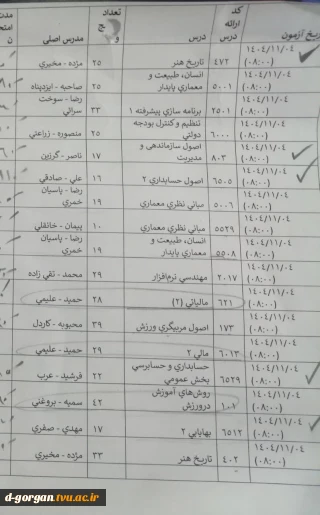 تاریخ آزمون	کد ارائه درس	درس	تعداد	مدرس اصلی
۱۴۰۴/۱۱/۰۴ (۰۸:۰۰)	۴۷۲	تاریخ هنر	۲۵	مژده - مخیری
۱۴۰۴/۱۱/۰۴ (۰۸:۰۰)	۵۰۰۱	انسان، طبیعت و معماری پایدار	۲۵	صاحبه - ایزدپناه
۱۴۰۴/۱۱/۰۴ (۰۸:۰۰)	۲۵۰۱	برنامه سازی پیشرفته ۱	۳۳	رضا - سوخت سرائی
۱۴۰۴/۱۱/۰۴ (۰۸:۰۰)	۶۰۰۰	تنظیم و کنترل بودجه دولتي	۲۵	منصوره - زراعتي
۱۴۰۴/۱۱/۰۴ (۰۸:۰۰)	۸۰۳	اصول سازماندهی و مدیریت	۱۷	ناصر - گرزین
۱۴۰۴/۱۱/۰۴ (۰۸:۰۰)	۶۵۰۵	اصول حسابداری ۲	۱۶	علي - صادقي
۱۴۰۴/۱۱/۰۴ (۰۸:۰۰)	۵۰۰۶	مباني نظري معماري	۱۹	رضا - پاسیان خمري
۱۴۰۴/۱۱/۰۴ (۰۸:۰۰)	۵۵۲۹	مباني نظري معماري	۱۰	پیمان - خانقلي
۱۴۰۴/۱۱/۰۴ (۰۸:۰۰)	۵۵۰۸	انسان، طبیعت و معماري پایدار	۱۹	رضا - پاسیان خمري
۱۴۰۴/۱۱/۰۴ (۰۸:۰۰)	۲۰۱۷	مهندسي نرم‌افزار	۲۹	محمد - تقي زاده
۱۴۰۴/۱۱/۰۴ (۰۸:۰۰)	۶۲۱	مالیاتي (۲)	۲۸	حمید - علیمي
۱۴۰۴/۱۱/۰۴ (۰۸:۰۰)	۱۷۳	اصول مربیگري ورزش	۳۹	محبوبه - کاردل
۱۴۰۴/۱۱/۰۴ (۰۸:۰۰)	۶۰۱۳	مالي ۲	۲۹	حمید - علیمي
۱۴۰۴/۱۱/۰۴ (۰۸:۰۰)	۶۵۲۹	حسابداري و حسابرسي بخش عمومي	۲۲	فرشید - عرب
۱۴۰۴/۱۱/۰۴ (۰۸:۰۰)	۱۰۲	روش‌هاي آموزش درورزش	۴۲	سمیه - بروغني
۱۴۰۴/۱۱/۰۴ (۰۸:۰۰)	۶۵۱۲	بهایابي ۲	۱۷	مهدي - صفري
۱۴۰۴/۱۱/۰۴ (۰۸:۰۰)	۴۰۲	تاریخ هنر	۳۳	مژده - مخیري
d-gorgan.tvu.ac.ir